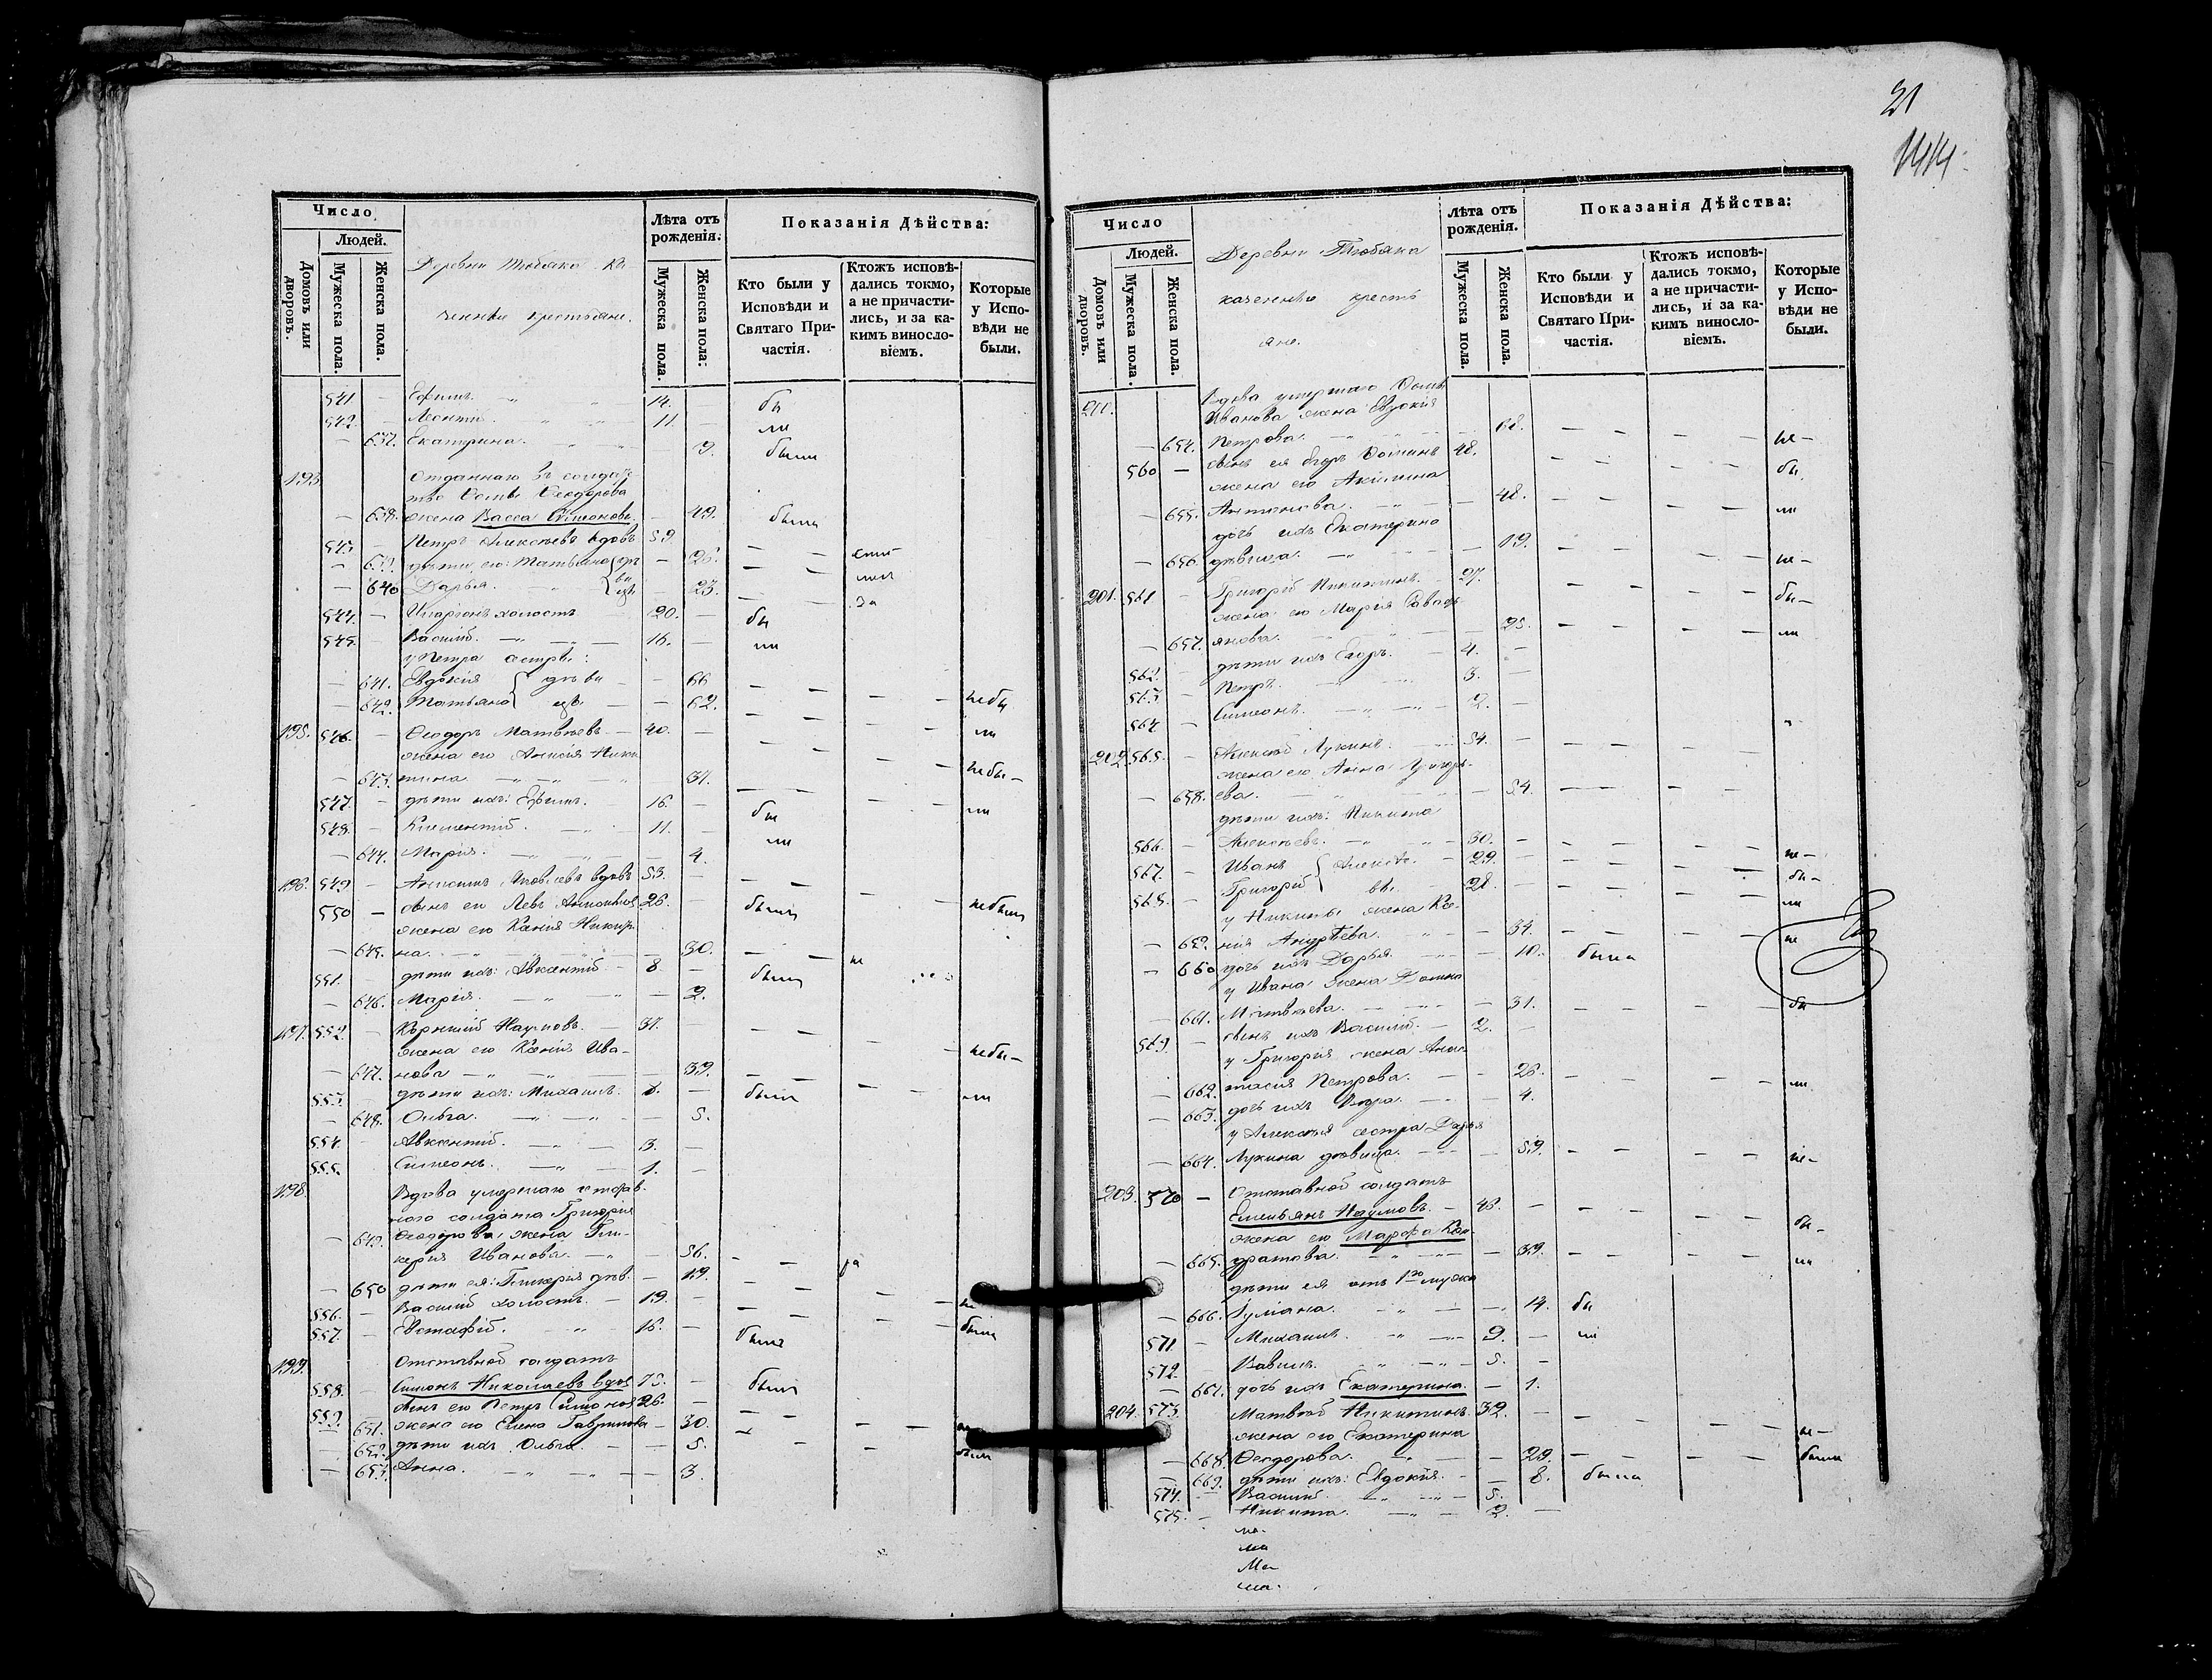 Число
Людей.
Домовъ или дворовъ.
Мужеска пола.
Женска пола.
Деревни Тюбяка Ка-
зенные крестьяне.
Лѣта отъ рожденія:
Мужеска пола.
Женска пола:
Показанія Дѣйства:
Кто были у Исповѣди и Святаго Причастія.
Ктожъ исповѣдались токмо, а не причастились, и за какимъ винословіемъ.
Которые у Исповѣди не были.
541. — Ефимъ. 14. бы
542. — Леонтій. 11. — ли
— 637. Екатерина. — 9. были
193. Отданнаго въ солдат
ство Ѳомы Ѳеодорова
— 638. жена Васса Симонова. — 49. была
543. — Петръ Алексѣевъ вдовъ 59.
— 639. дѣти его: Татьяна — 26.
— 640 Дарья. — 23. за
544. — Иларіонъ холостъ 20. — бы
545. — Василій. 16. — ли
у Петра сестры:
— 641. Евдокія дѣви — 66 небы
— 642. Татьяна цы. — 62. ли
195. 546. — Ѳеодоръ Матвѣевъ. 40. —
жена его Анисія Ники
— 643. тина. 37. небы —
547. — дѣти ихъ: Ефимъ. 16. — бы ли
548. — Климентій. 11. — ли
— 644. Марія. — 4.
196. 549 — Анисимъ Яковлевъ вдовъ 53. —
550 — сынъ его Левъ Анисимовъ 26. — былъ небыли
жена его Ксенія Никиф.
— 645. на. — 30. не
551. — дѣти ихъ: Авксентій 8. — были
— 646. Марія. — 2.
197. 552. — Корнилій Наумовъ. 37. —
жена его Ксенія Ива-
— 647. нова — 39. небы —
553. — дѣти ихъ: Михаилъ. 8. — были ли
— 648. Ольга. — 5.
554. — Авксентій. 3. —
555. Симеонъ. 1. —
198. Вдова умершаго отстав-
ного солдата Григорія
— 649. Ѳеодорова, жена Гли-
керія Иванова. — 56.
— 650 дѣти ея: Гликерія дѣв. — 19.
556. — Василій холостъ. 19. — не
557. — Евстафій. 16. — были были
199. Отставной солдатъ
558. — Симонъ Николаевъ вдов 75. — былъ
559. сынъ его Петръ Симоновъ 26. —
651. жена его Елена Гавриилова — 30.
— 652. дѣти ихъ Ольга. — 5. были
— 653. Анна. — 3.
21
144.
Число
Людей.
Домовъ или дворовъ.
Мужеска пола.
Женска пола.
Деревни Тюбяка
казенные кресть
яне.
Лѣта отъ рожденія.
Мужеска пола.
Женска пола.
Показанія Дѣйства:
Кто были у Исповѣди и Святаго Причастія.
Ктожъ исповѣдались токмо, а не причастились, и за какимъ винословіемъ.
Которые у Исповѣди не были.
200. Вдова умершаго Ѳомы
Иванова жена Евдокія
— 654. Петрова. 68. не —
560 — сынъ ея Егоръ Ѳоминъ 48. бы
жена его Акилина
— 655. Антонова. — 48. ли
дочь ихъ Екатерина
— 656. дѣвица. — 19. не —
201. 561 — Григорій Никитинъ. 27. бы —
жена его Марія Савать
— 657. янова. — 25. ли
562. — дѣти ихъ Егоръ. 4. —
563 — Петръ. 3. —
564 — Симеонъ. 2. —
202. 565. — Алексѣй Лукинъ. 54. —
жена его Анна Григорь-
— 658. ева. — 54.
дѣти ихъ: Никита
566. — Алексѣевъ. 30. — не —
567. — Иванъ Алексѣе- 29. — бы —
568. — Григорій вы. 28. — ли
у Никиты жена Ксе-
— 659. нія Андрѣева. — 34. не
— 660 дочь ихъ Дарья. — 10. была
у Ивана жена Домна
— 661. Матвѣева. — 31. бы
569. — сынъ ихъ Василій. 2. —
у Григорія жена Анас
— 662. тасія Петрова. — 26. ли
— 663. дочь ихъ Вѣра. — 4.
у Алексѣя сестра Дарья
— 664. Лукина дѣвица. — 59. не —
203. 570 — Отставной солдатъ
Емельянъ Наумовъ. 48. — бы —
жена его Марфа Кон-
— 665. дратова. — 39. ли
дѣти ея отъ 1го мужа
— 666. Іуліана. — 14. бы
571 — Михаилъ. 9. — ли
572 Вавилъ. 5. —
— 667. дочь ихъ Екатерина. — 1.
204. 573. Матвѣй Никитинъ. 32. —
жена его Екатерина не —
— 668. Ѳеодорова. — 29. были
— 669. дѣти ихъ: Евдокія. — 8. была
574. — Василій. 5.
575. — Никита. 2. —